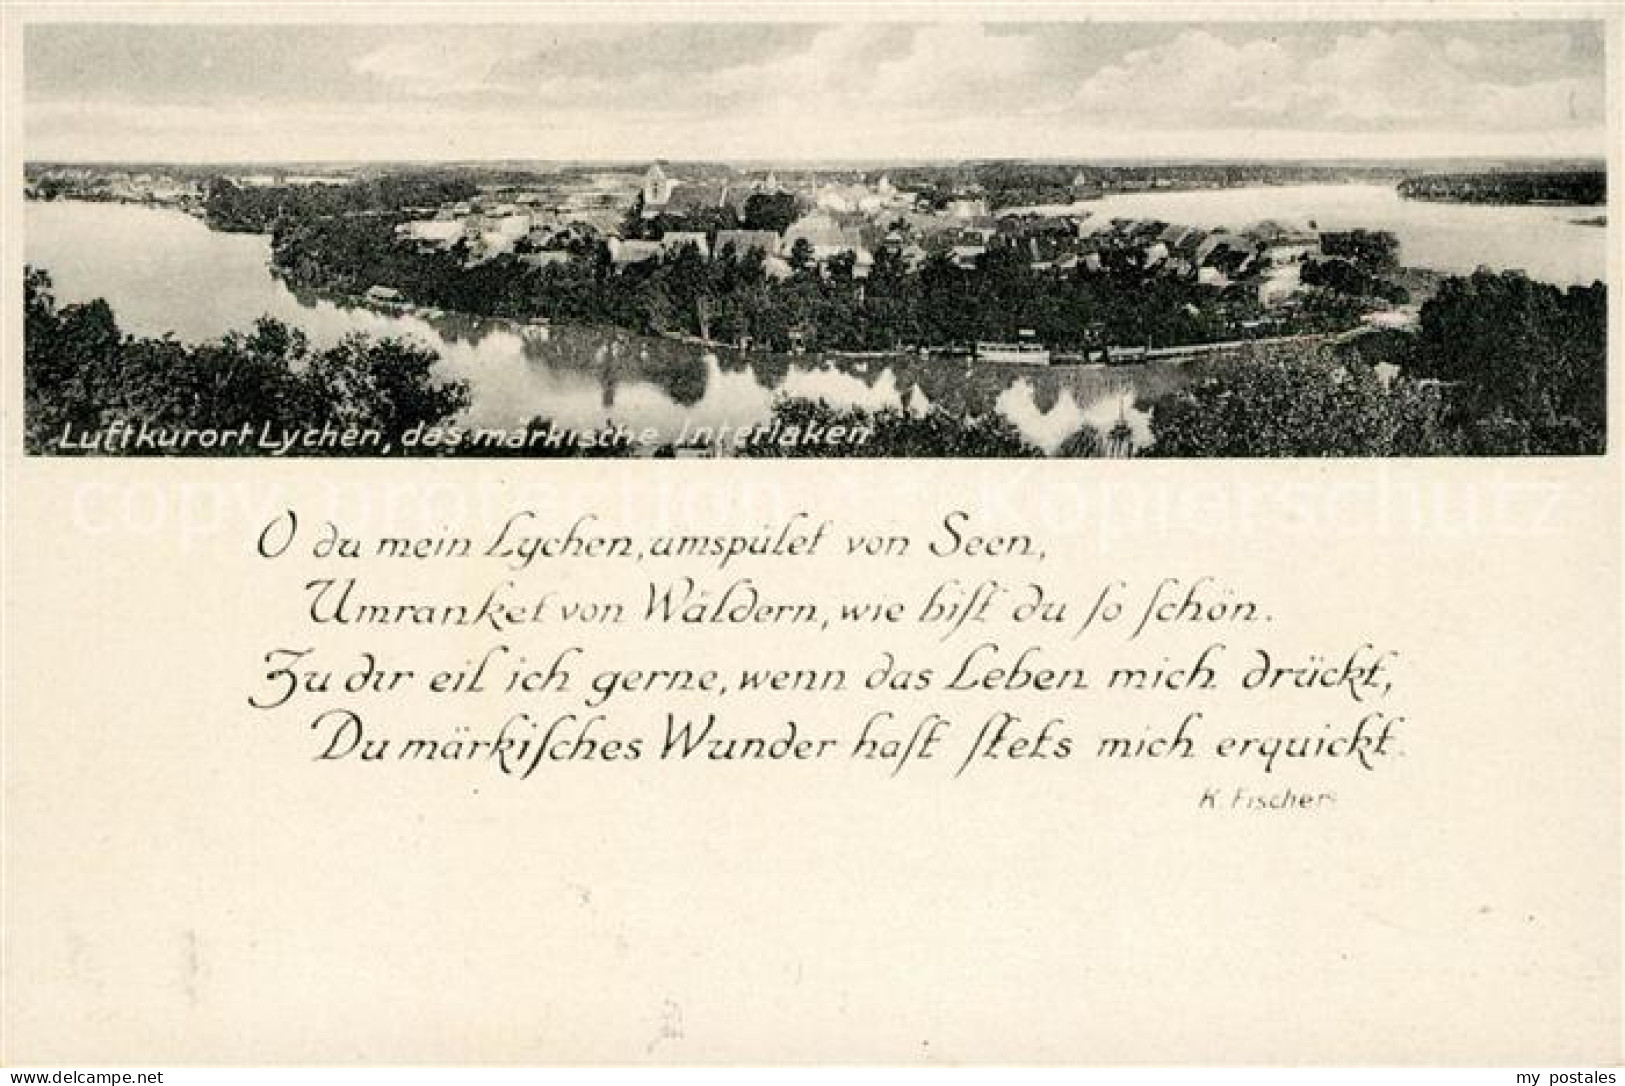 Luftkurort Lychen, das märkische Interlaken
copy protection - Kopierschutz
O du mein Lychen, umspület von Seen,
Umranket von Wäldern, wie biſt du ſo ſchön.
Zu dir eil ich gerne, wenn das Leben mich drückt,
Du märkiſches Wunder haſt ſtets mich erquickt.
K. Fischer
www.delcampe.net
my_postales